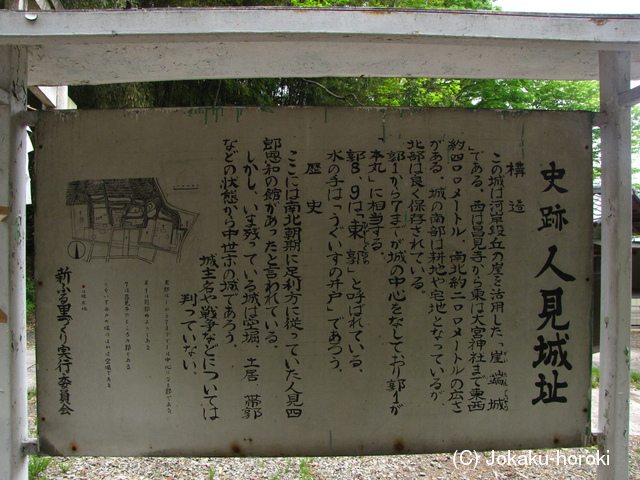 史跡 人見城址
構造
この城は河岸段丘の崖を活用した「崖端城
」である。西は昌見寺から東は大宮神社まで東西
約四〇〇メートル、南北約二〇〇メートルの広さ
がある。城の南部は耕地や宅地となっているが
北部は良く保存されている。
郭1から7までが城の中心をなしており郭1が
「本丸」に相当する。
郭8、9は「東郭」と呼ばれている。
水の手は「うぐいすの井戸」であろう。
歴史
ここには南北朝期に足利方に従っていた人見四
郎恩和の館があったと言われている。
しかし、いま残っている城は空堀、土居、帯郭
などの状態から中世末の城であろう。
城主名や戦争などについては
判っていない。
新ふる里づくり実行委員会
(C) Jokaku-horoki